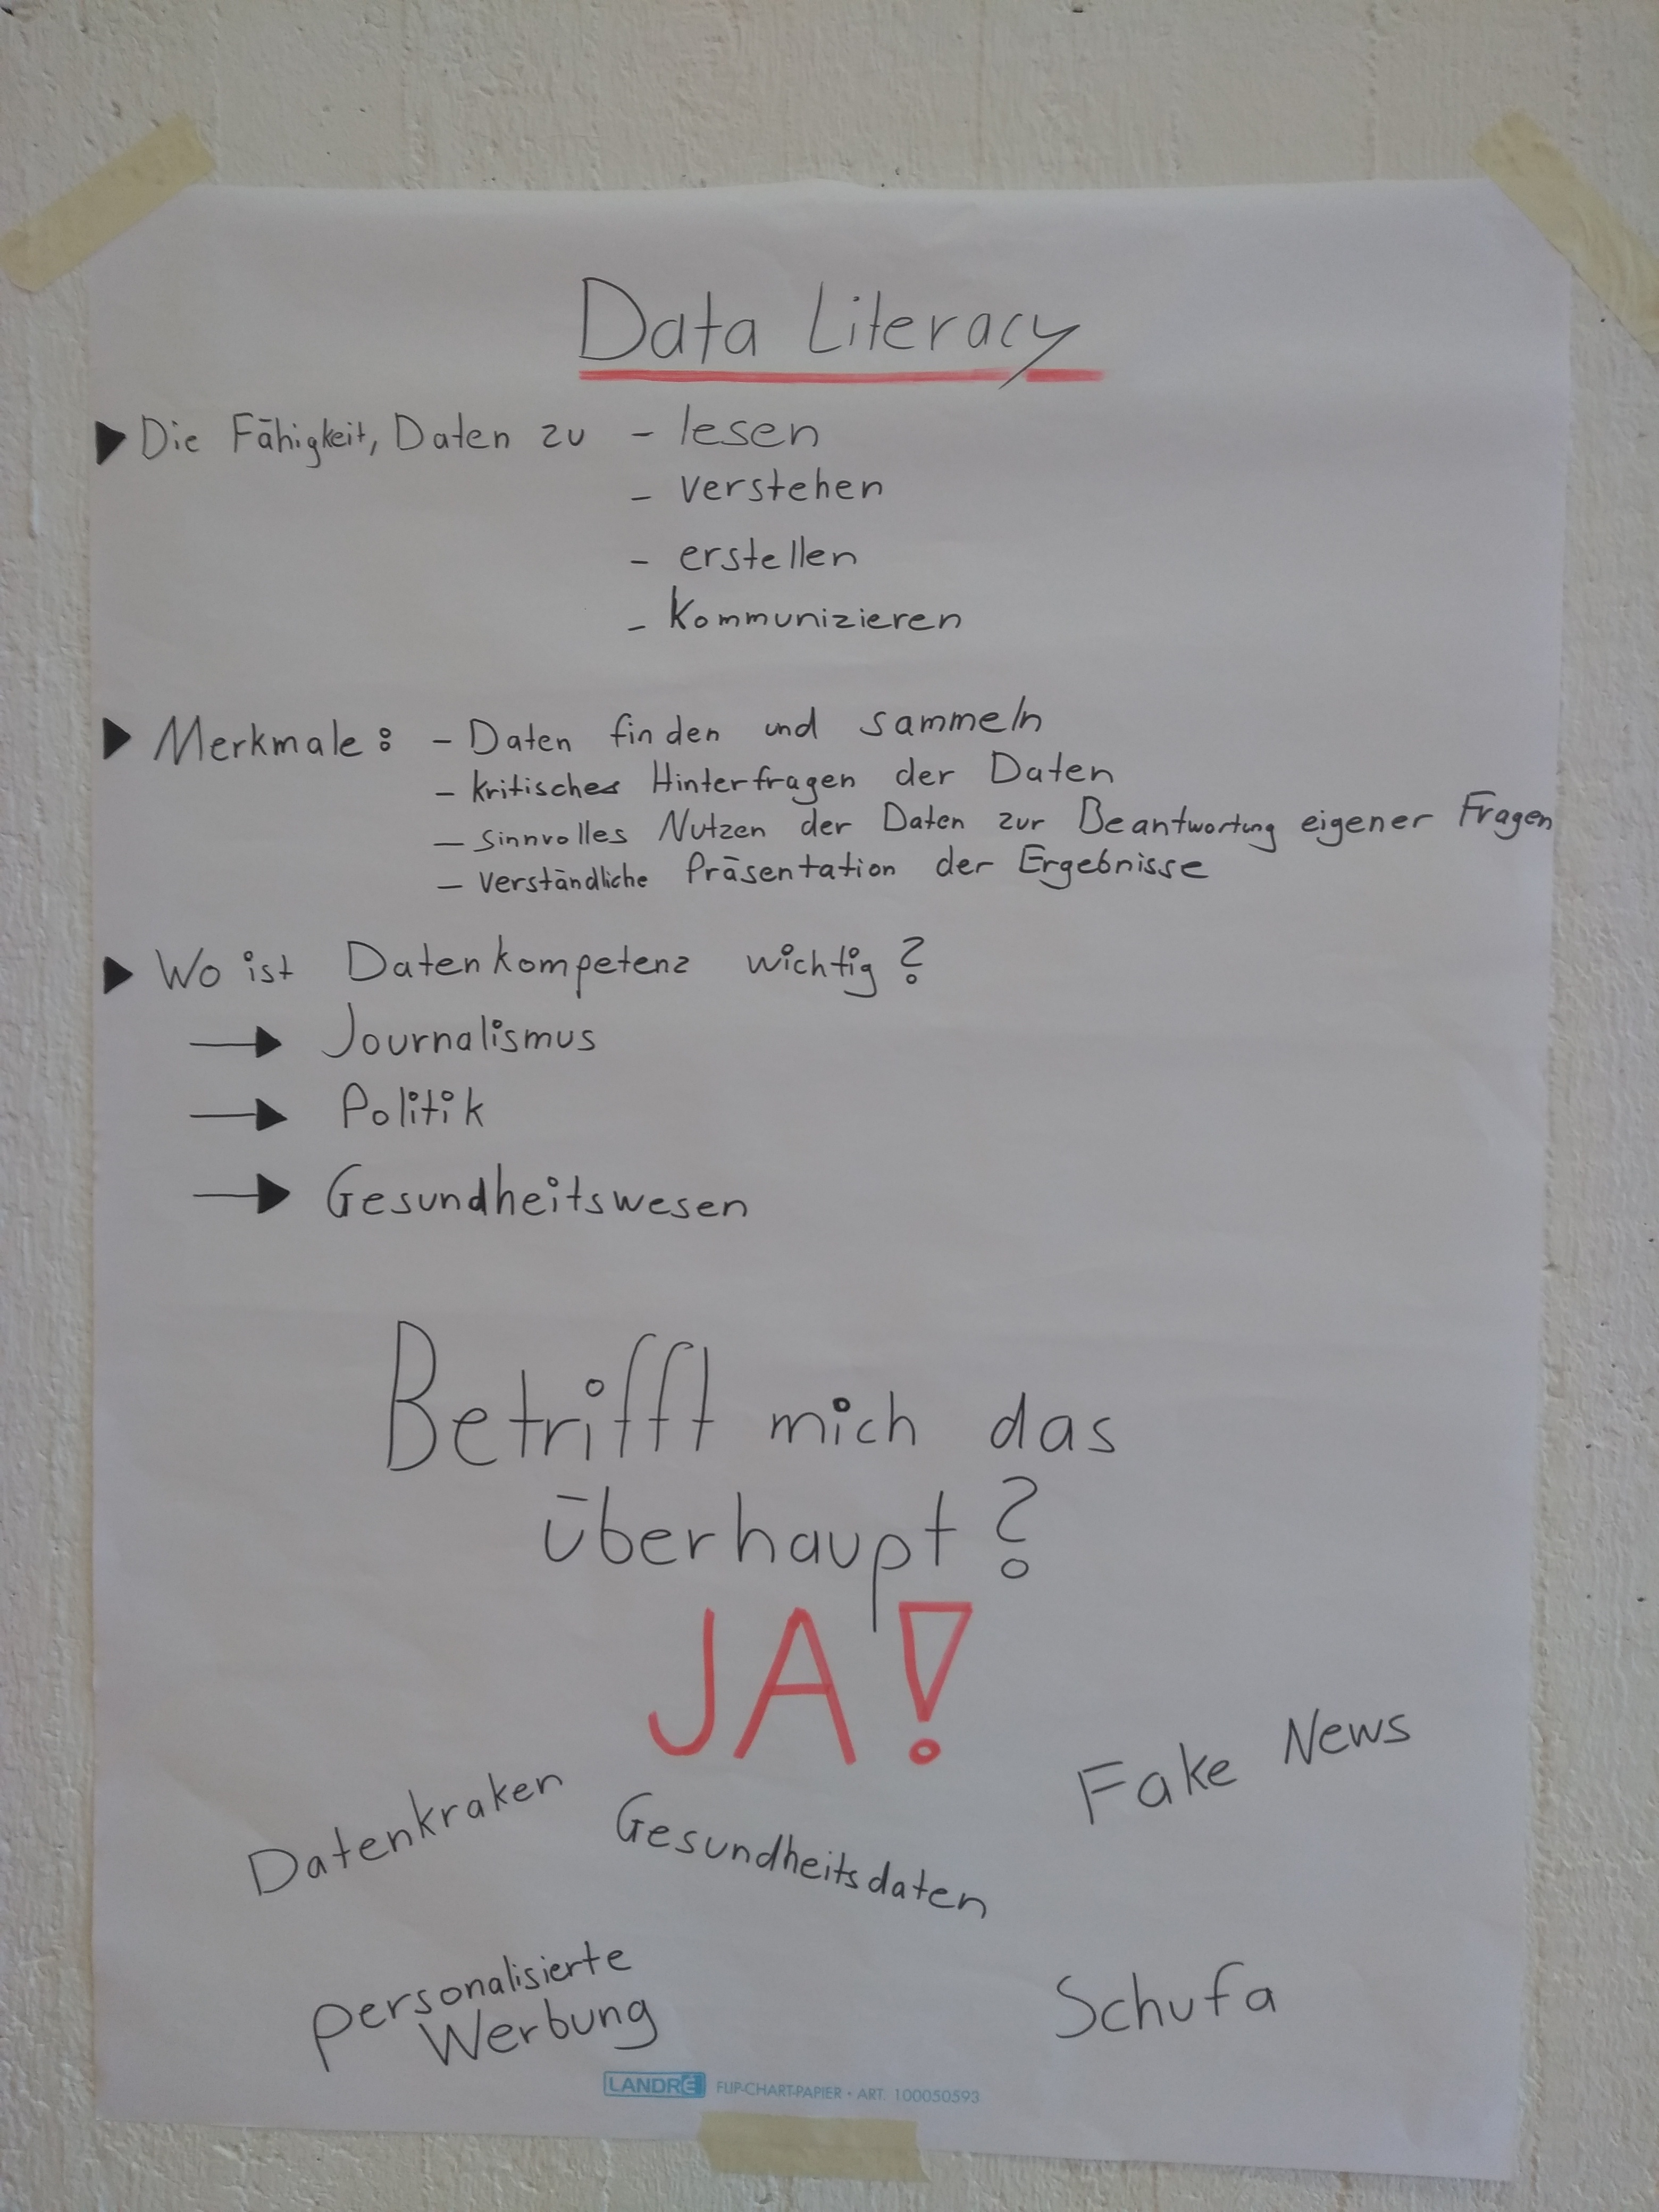 Data Literacy
▶ Die Fähigkeit, Daten zu - lesen
- verstehen
- erstellen
- kommunizieren
▶ Merkmale: - Daten finden und sammeln
- kritisches Hinterfragen der Daten
- sinnvolles Nutzen der Daten zur Beantwortung eigener Fragen
- verständliche Präsentation der Ergebnisse
▶ Wo ist Datenkompetenz wichtig?
→ Journalismus
→ Politik
→ Gesundheitswesen
Betrifft mich das
überhaupt?
JA!
Datenkraken
Gesundheitsdaten
Fake News
personalisierte
Werbung
Schufa
LANDRÉ FLIP-CHART-PAPIER • ART. 100050593